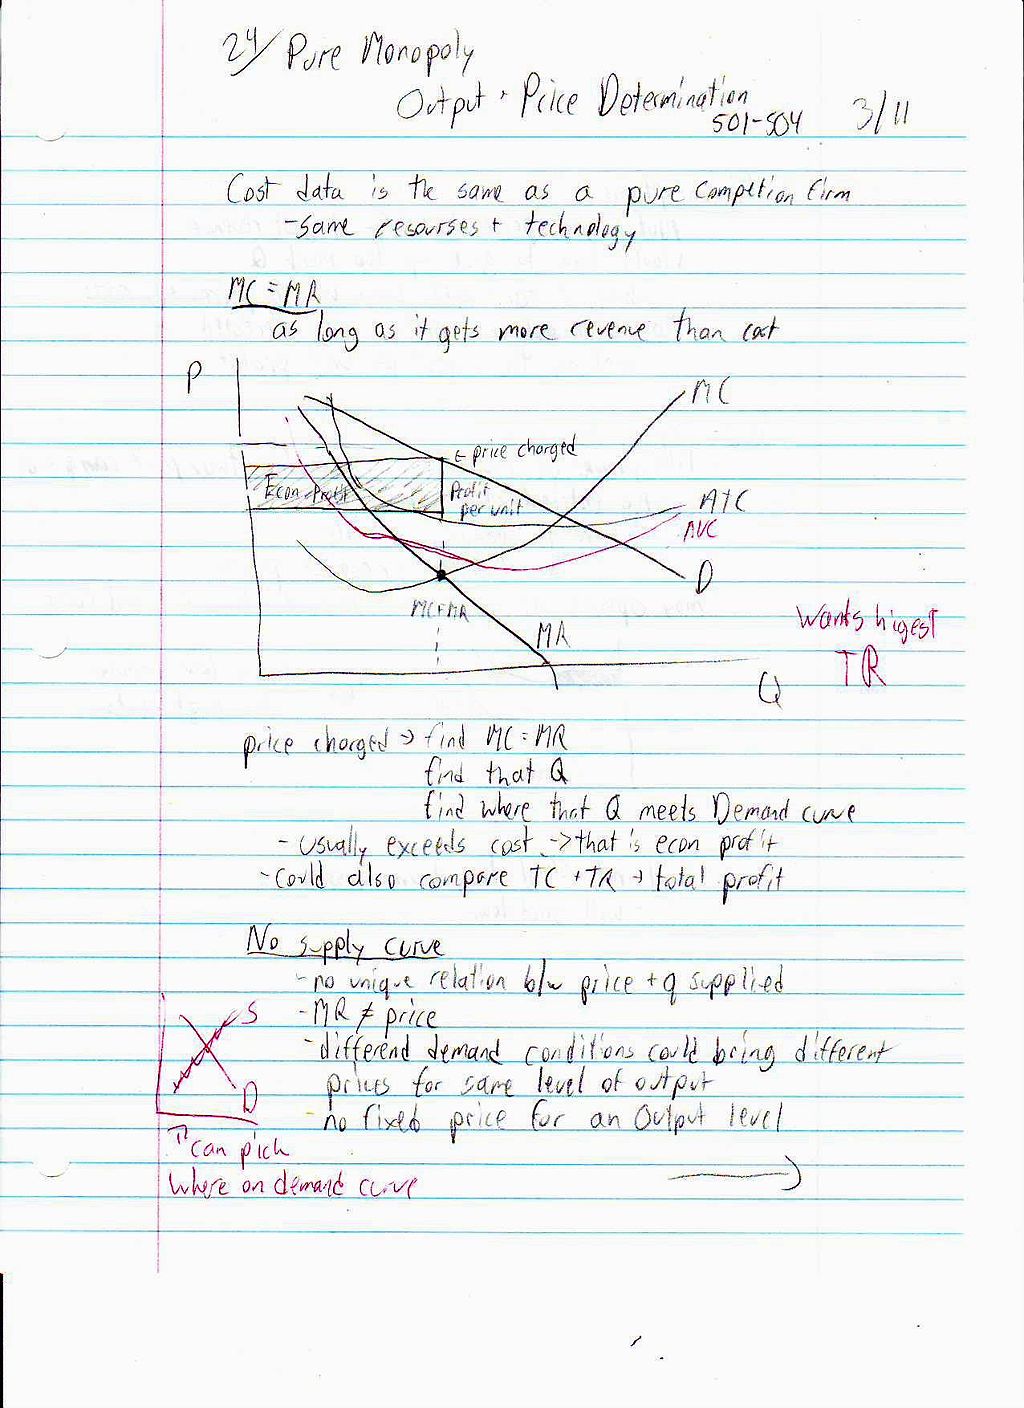 24/ Pure Monopoly
Output + Price Determination
501-504
3/11
Cost data is the same as a pure competion firm
- same resourses + technology
MC = MR
as long as it gets more revenue than cost
P
MC
← price charged
Econ Profit
Profit
per unit
ATC
AVC
D
MC=MR
MR
Q
Wants higest
TR
price charged → find MC = MR
find that Q
find where that Q meets Demand curve
- usually exceeds cost → that is econ profit
- Could also compare TC + TR → total profit
No supply curve
- no unique relation b/w price + q supplied
- MR ≠ price
- differend demand conditions could bring different
prices for same level of output
- no fixed price for an Output level
S
D
↑ can pick
where on demand curve